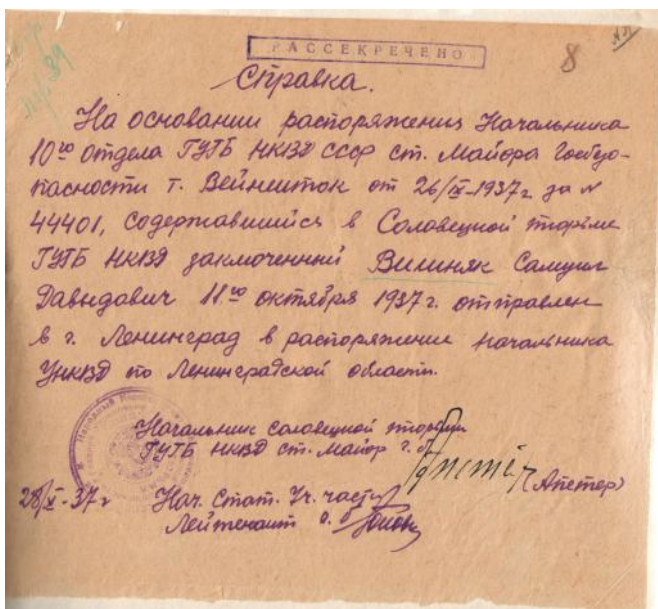 РАССЕКРЕЧЕНО
8
Справка.
На основании распоряжения Начальника
10го отдела ГУГБ НКВД СССР ст. Майора Госбезо-
пасности т. Вейншток от 26/IX-1937г за №
44401, содержавшийся в Соловецкой тюрьме
ГУГБ НКВД заключенный Вишняк Самуил
Давидович 11го октября 1937 г. отправлен
в г. Ленинград в распоряжение начальника
УНКВД по Ленинградской области.
Начальник Соловецкой тюрьмы
ГУГБ НКВД ст. майор г. б.
(Апетер)
28/X-37г Нач. Стат. Уч. части
Лейтенант г. б.